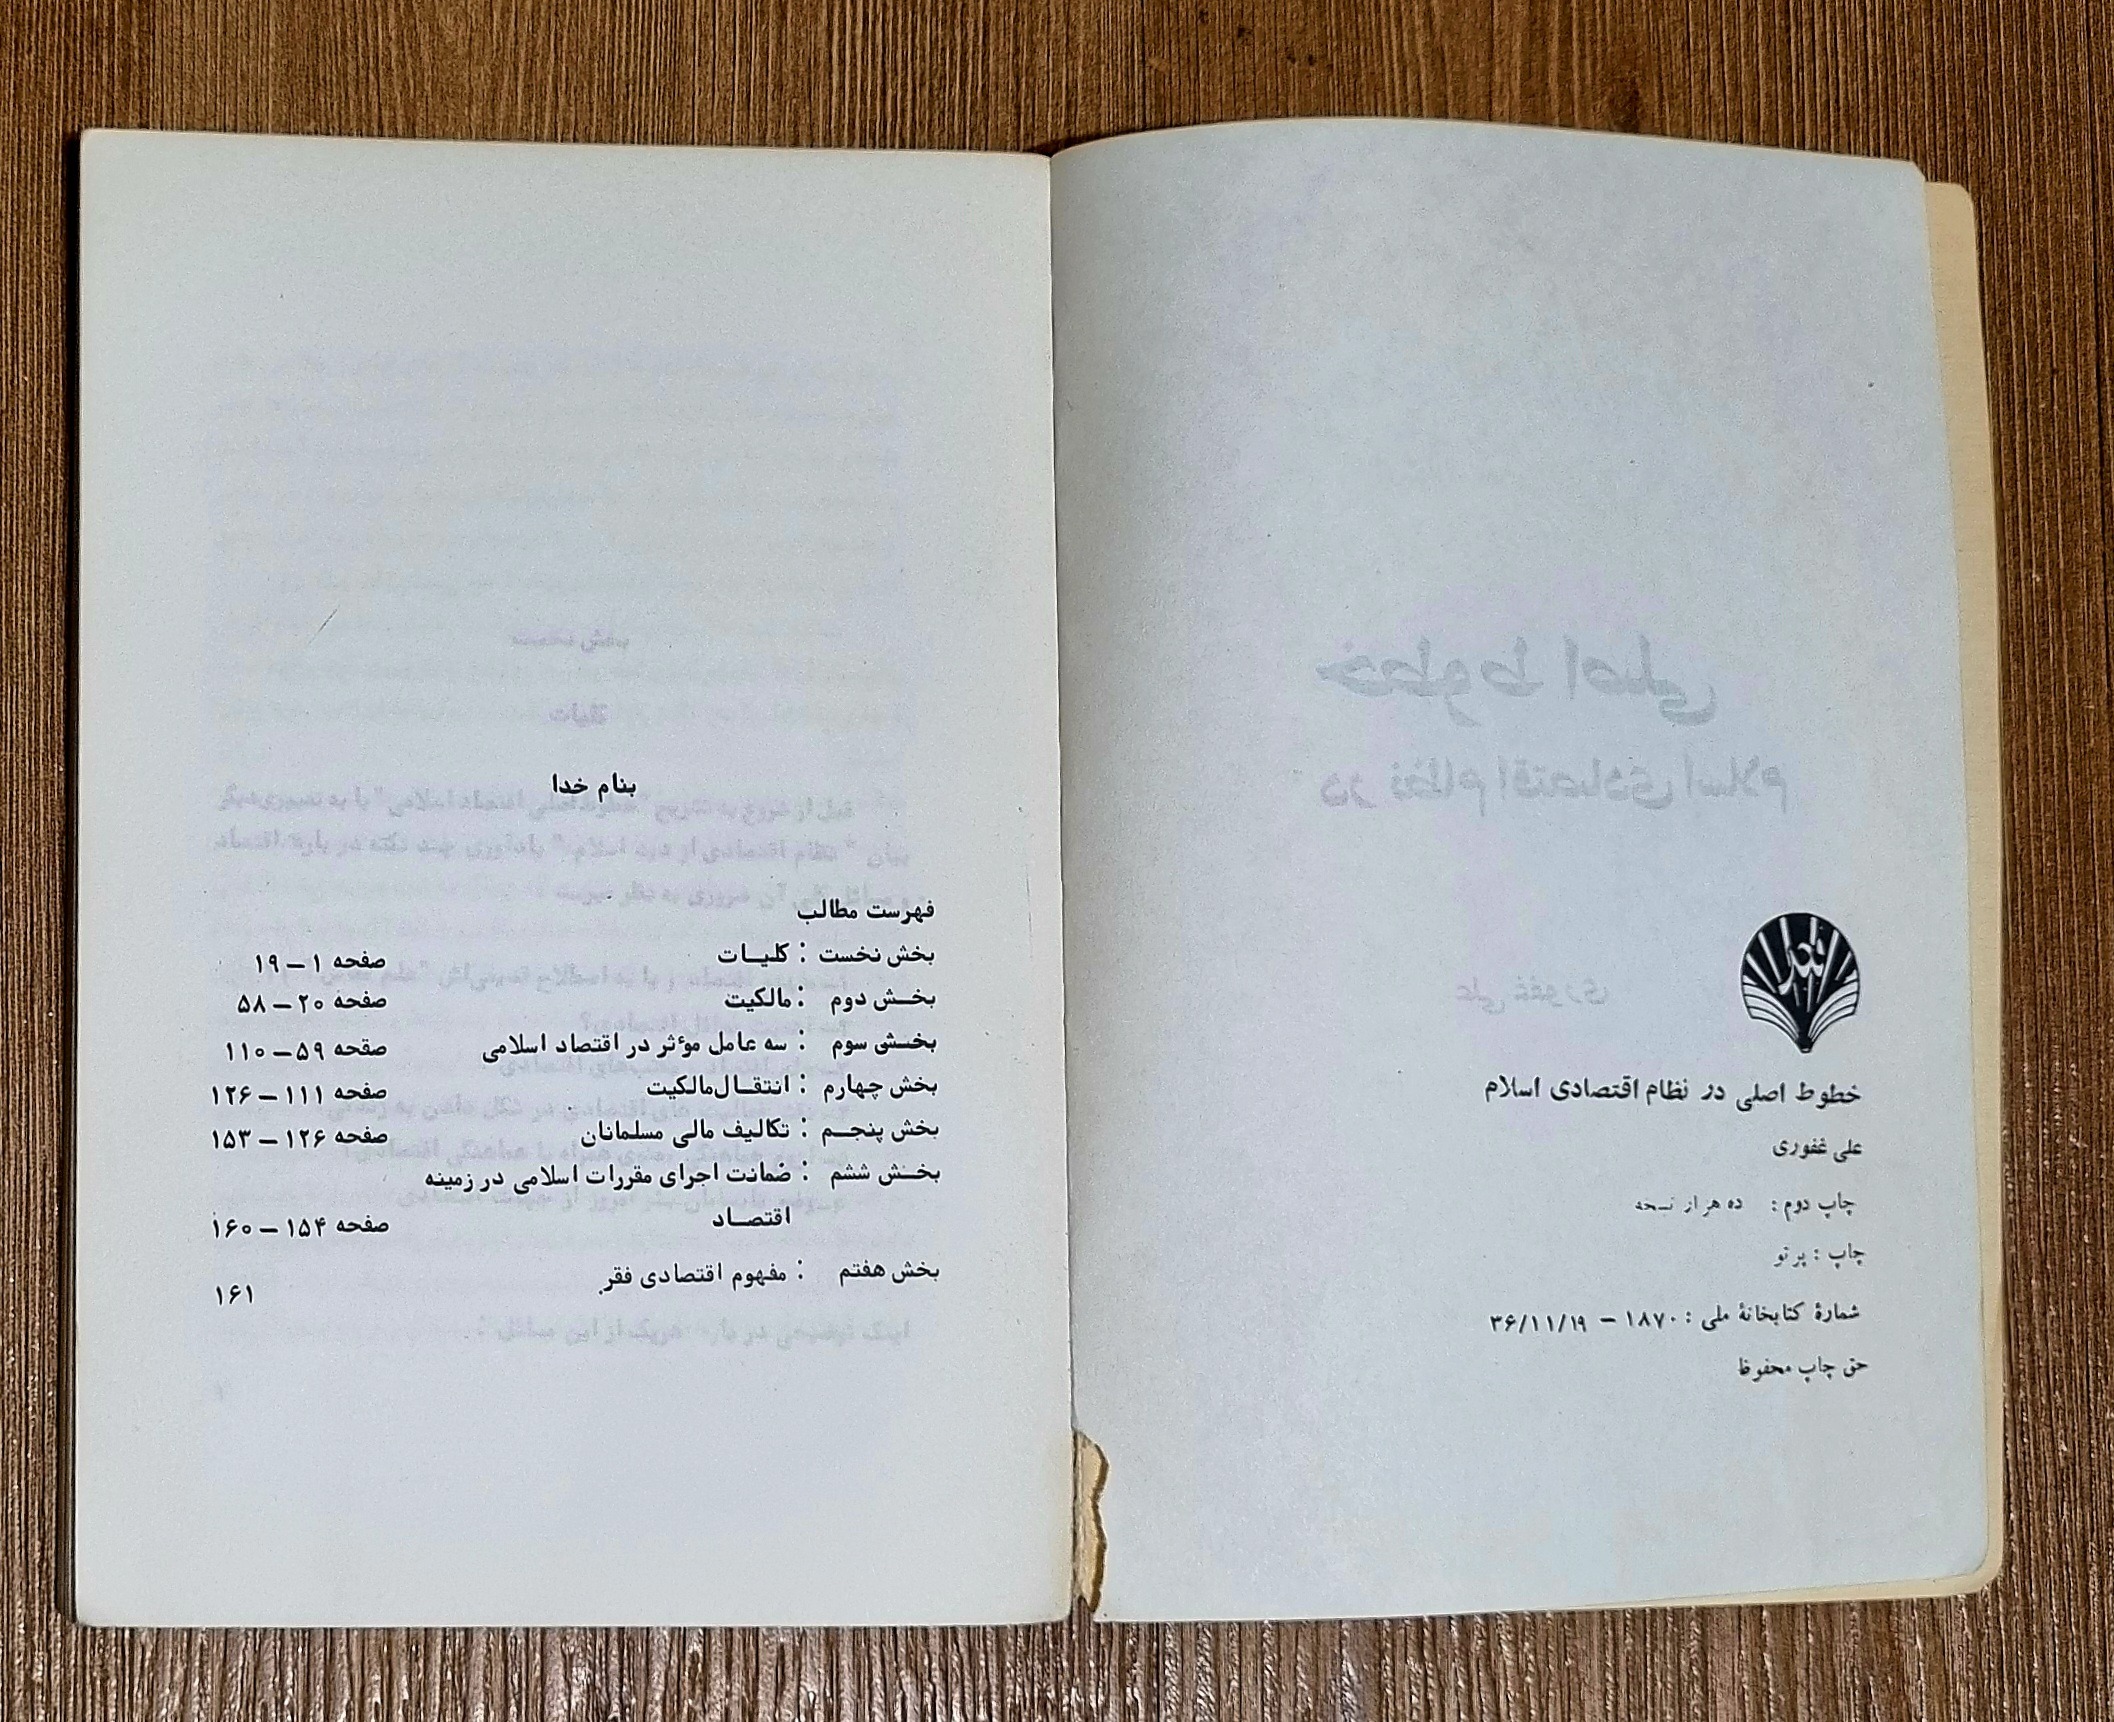 فجر
خطوط اصلی در نظام اقتصادی اسلام
علی غفوری
چاپ دوم : ده هزار نسخه
چاپ : پرتو
شمارهٔ کتابخانهٔ ملی : ۱۸۷۰ – ۳۶/۱۱/۱۹
حق چاپ محفوظ
بنام خدا
فهرست مطالب
بخش نخست : کلیـات صفحه ۱ – ۱۹
بخـش دوم : مالکیت صفحه ۲۰ – ۵۸
بخـش سوم : سه عامل مؤثر در اقتصاد اسلامی صفحه ۵۹ – ۱۱۰
بخش چهارم : انتقـال‌مالکیت صفحه ۱۱۱ – ۱۲۶
بخش پنجـم : تکالیف مالی مسلمانان صفحه ۱۲۶ – ۱۵۳
بخـش ششم : ضمانت اجرای مقررات اسلامی در زمینه
اقتصـاد صفحه ۱۵۴ – ۱۶۰
بخش هفتم : مفهوم اقتصادی فقر ۱۶۱